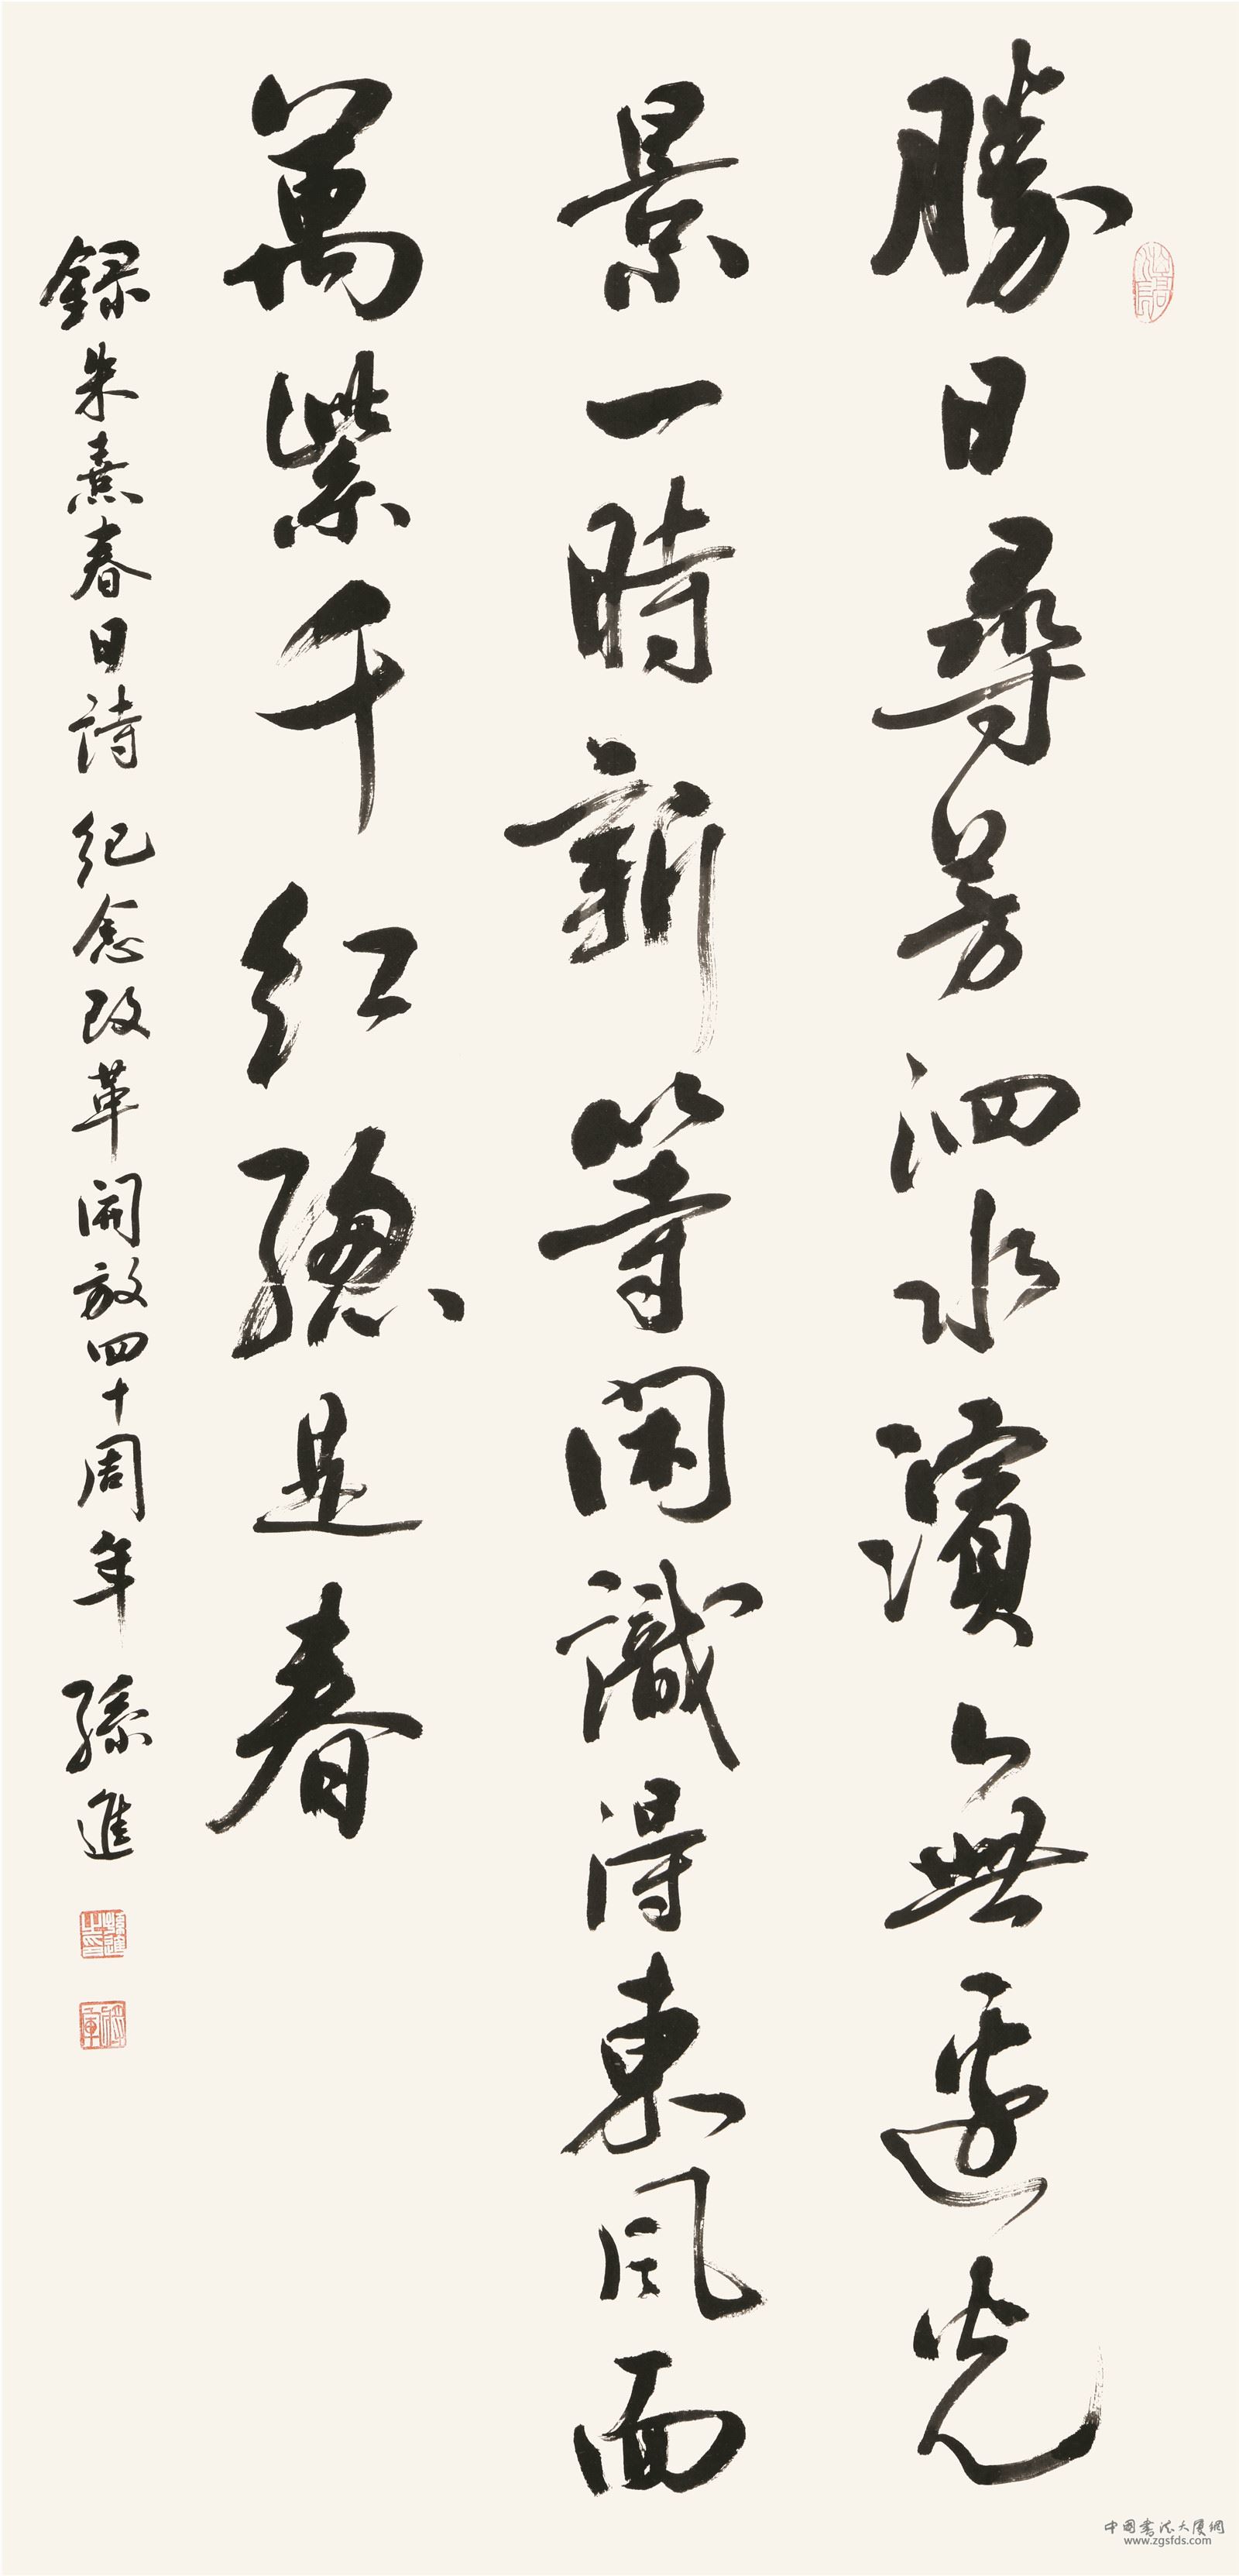 勝日尋芳泗水濱無邊光
景一時新等閑識得東風面
萬紫千紅總是春
錄朱熹春日詩 紀念改革開放四十周年 孫進
中國書法大廈網
www.zgsfds.com